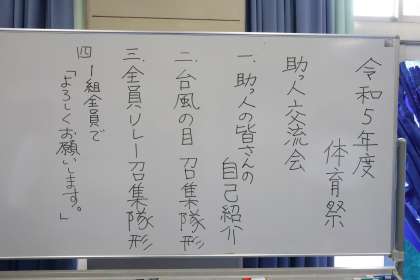 令和5年度
体育祭
助っ人交流会
一.助っ人の皆さんの
自己紹介
二.台風の目 召集隊形
三.全員リレー召集隊形
四 1組全員で
「よろしくお願いします。」